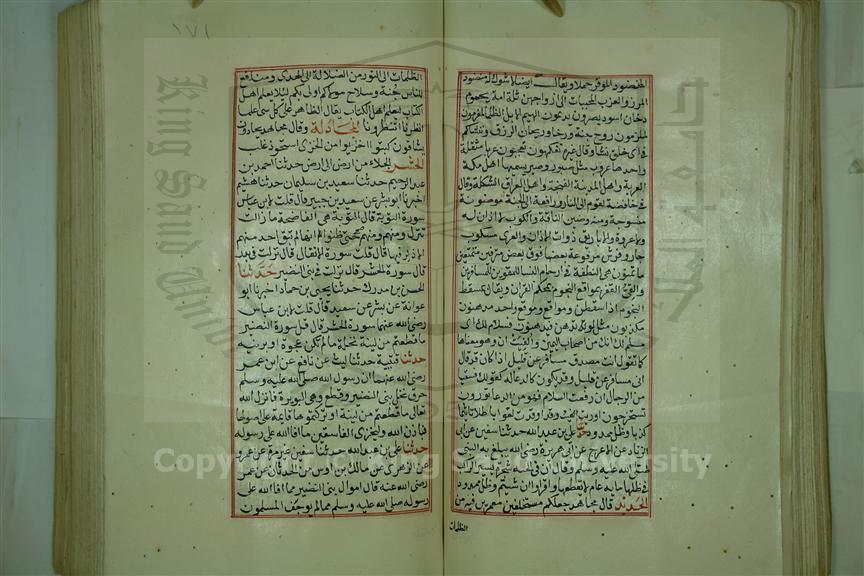 المخضود الموقر حملا ويقال ايضا لا شوك له منضود
الموز والعرب المحببات الى ازواجهن ثلة امة يحموم
دخان اسود يصرون يديمون الهيم الابل الظماء لمغرمون
لملزمون روح جنة ورخاء وريحان الرزق وننشئكم
في اي خلق نشاء وقال غيره تفكهون تعجبون عربا مثقلة
واحدها عروب مثل صبور وصبر يسميها اهل مكة
العربة واهل المدينة الغنجة واهل العراق الشكلة وقال
في خافضة لقوم الى النار ورافعة الى الجنة موضونة
منسوجة ومنه وضين الناقة والكوب لا اذان له
ولا عروة والاباريق ذوات الاذان والعرى مسكوب
جار وفرش مرفوعة بعضها فوق بعض مترفين متمتعين
ما تمنون هي النطفة في ارحام النساء للمقوين للمسافرين
والقي القفر بمواقع النجوم بمحكم القران ويقال بمسقط
النجوم اذا سقطن ومواقع وموقع واحد مدهنون
مكذبون مثل لو تدهن فيدهنون فسلام لك اي
مسلم لك انك من اصحاب اليمين والغيت ان وهو معناها
كما تقول انت مصدق مسافر عن قليل اذا كان قد قال
اني مسافر عن قليل وقد يكون كالدعاء له كقولك فسقيا
من الرجال ان رفعت السلام فهو من الدعاء تورون
تستخرجون اوريت اوقدت لغوا باطلا تاثيما
كذبا وظل ممدود حدثنا علي بن عبد الله حدثنا سفين عن ابي
الزناد عن الاعرج عن ابي هريرة رضي الله يبلغ به النبي
صلى الله عليه وسلم وقال ان في الجنة شجرة يسير الراكب
في ظلها ماية عام لا يقطعها واقراوا ان شيتم وظل ممدود
الحديد قال مجاهد جعلكم مستخلفين معمرين فيه من
الظلمات
١٧١
الظلمات الى النور من الضلالة الى الهدى ومنافع
للناس جنة وسلاح موليكم اولى بكم لئلا يعلم اهل
الكتاب ليعلم اهل الكتاب يقال الظاهر على كل شي علما
انظرونا انتظرونا المجادلة وقال مجاهد يحادون
يشاقون كبتوا اخزيوا من الخزي استحوذ غلب
الحشر الجلاء من ارض الى ارض حدثنا محمد بن
عبد الرحيم حدثنا سعيد بن سليمان حدثنا هشيم
اخبرنا ابو بشر عن سعيد بن جبير قال قلت لابن عباس
سورة التوبة قال التوبة هي الفاضحة ما زالت
تنزل ومنهم ومنهم حتى ظنوا انها لم تبق احد منهم
الا ذكر فيها قال قلت سورة الانفال قال نزلت في بدر
قال سورة الحشر قال نزلت في بني النضير حدثنا
الحسن بن مدرك حدثنا يحيى بن حماد اخبرنا ابو
عوانة عن بشر عن سعيد قال قلت لابن عباس
رضي الله عنهما سورة الحشر قال قل سورة النضير
ما قطعتم من لينة نخلة ما لم تكن عجوة او برنية
حدثنا قتيبة حدثنا ليث عن نافع عن ابن عمر
رضي الله عنهما ان رسول الله صلى الله عليه وسلم
حرق نخل بني النضير وقطع وهي البويرة فانزل الله
تعالى ما قطعتم من لينة او تركتموها قائمة على اصولها
فباذن الله وليخزي الفاسقين ما افا الله على رسوله
حدثنا علي بن عبد الله حدثنا سفين غير مرة عن عمرو
عن الزهري عن مالك بن اوس بن الحدثان عن عمر
رضي الله عنه قال كانت اموال بني النضير مما افا الله على
رسوله صلى الله عليه وسلم مما لم يوجف المسلمون
Copyright © King Saud University
King Saud University
1957